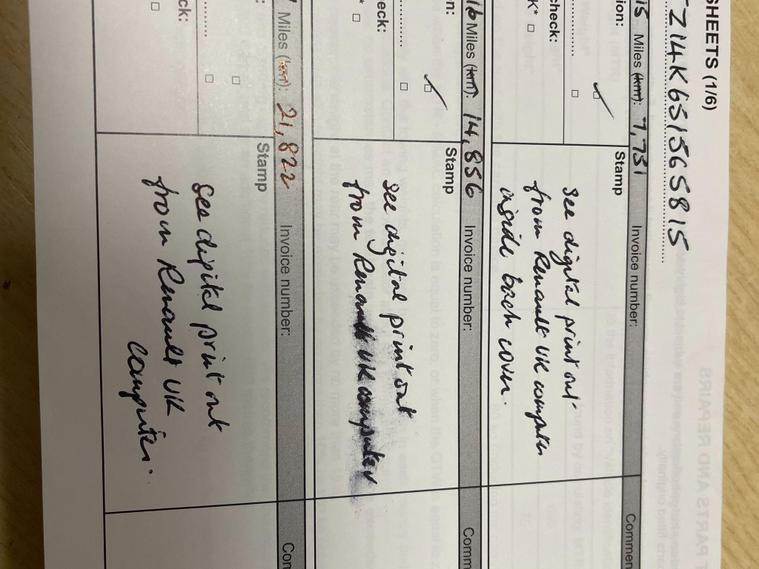 SHEETS (1/6)
Z14K651565815
15 Miles (km): 7,751 Invoice number:
Stamp
see digital print out
from Renault UK computer
inside back cover.
Commen
check:
16 Miles (km): 14,856 Invoice number:
Stamp
see digital print out
from Renault UK computer
Comm
eck:
Miles (km): 21,822 Invoice number:
Stamp
see digital print out
from Renault UK
computer.
Con
ck: